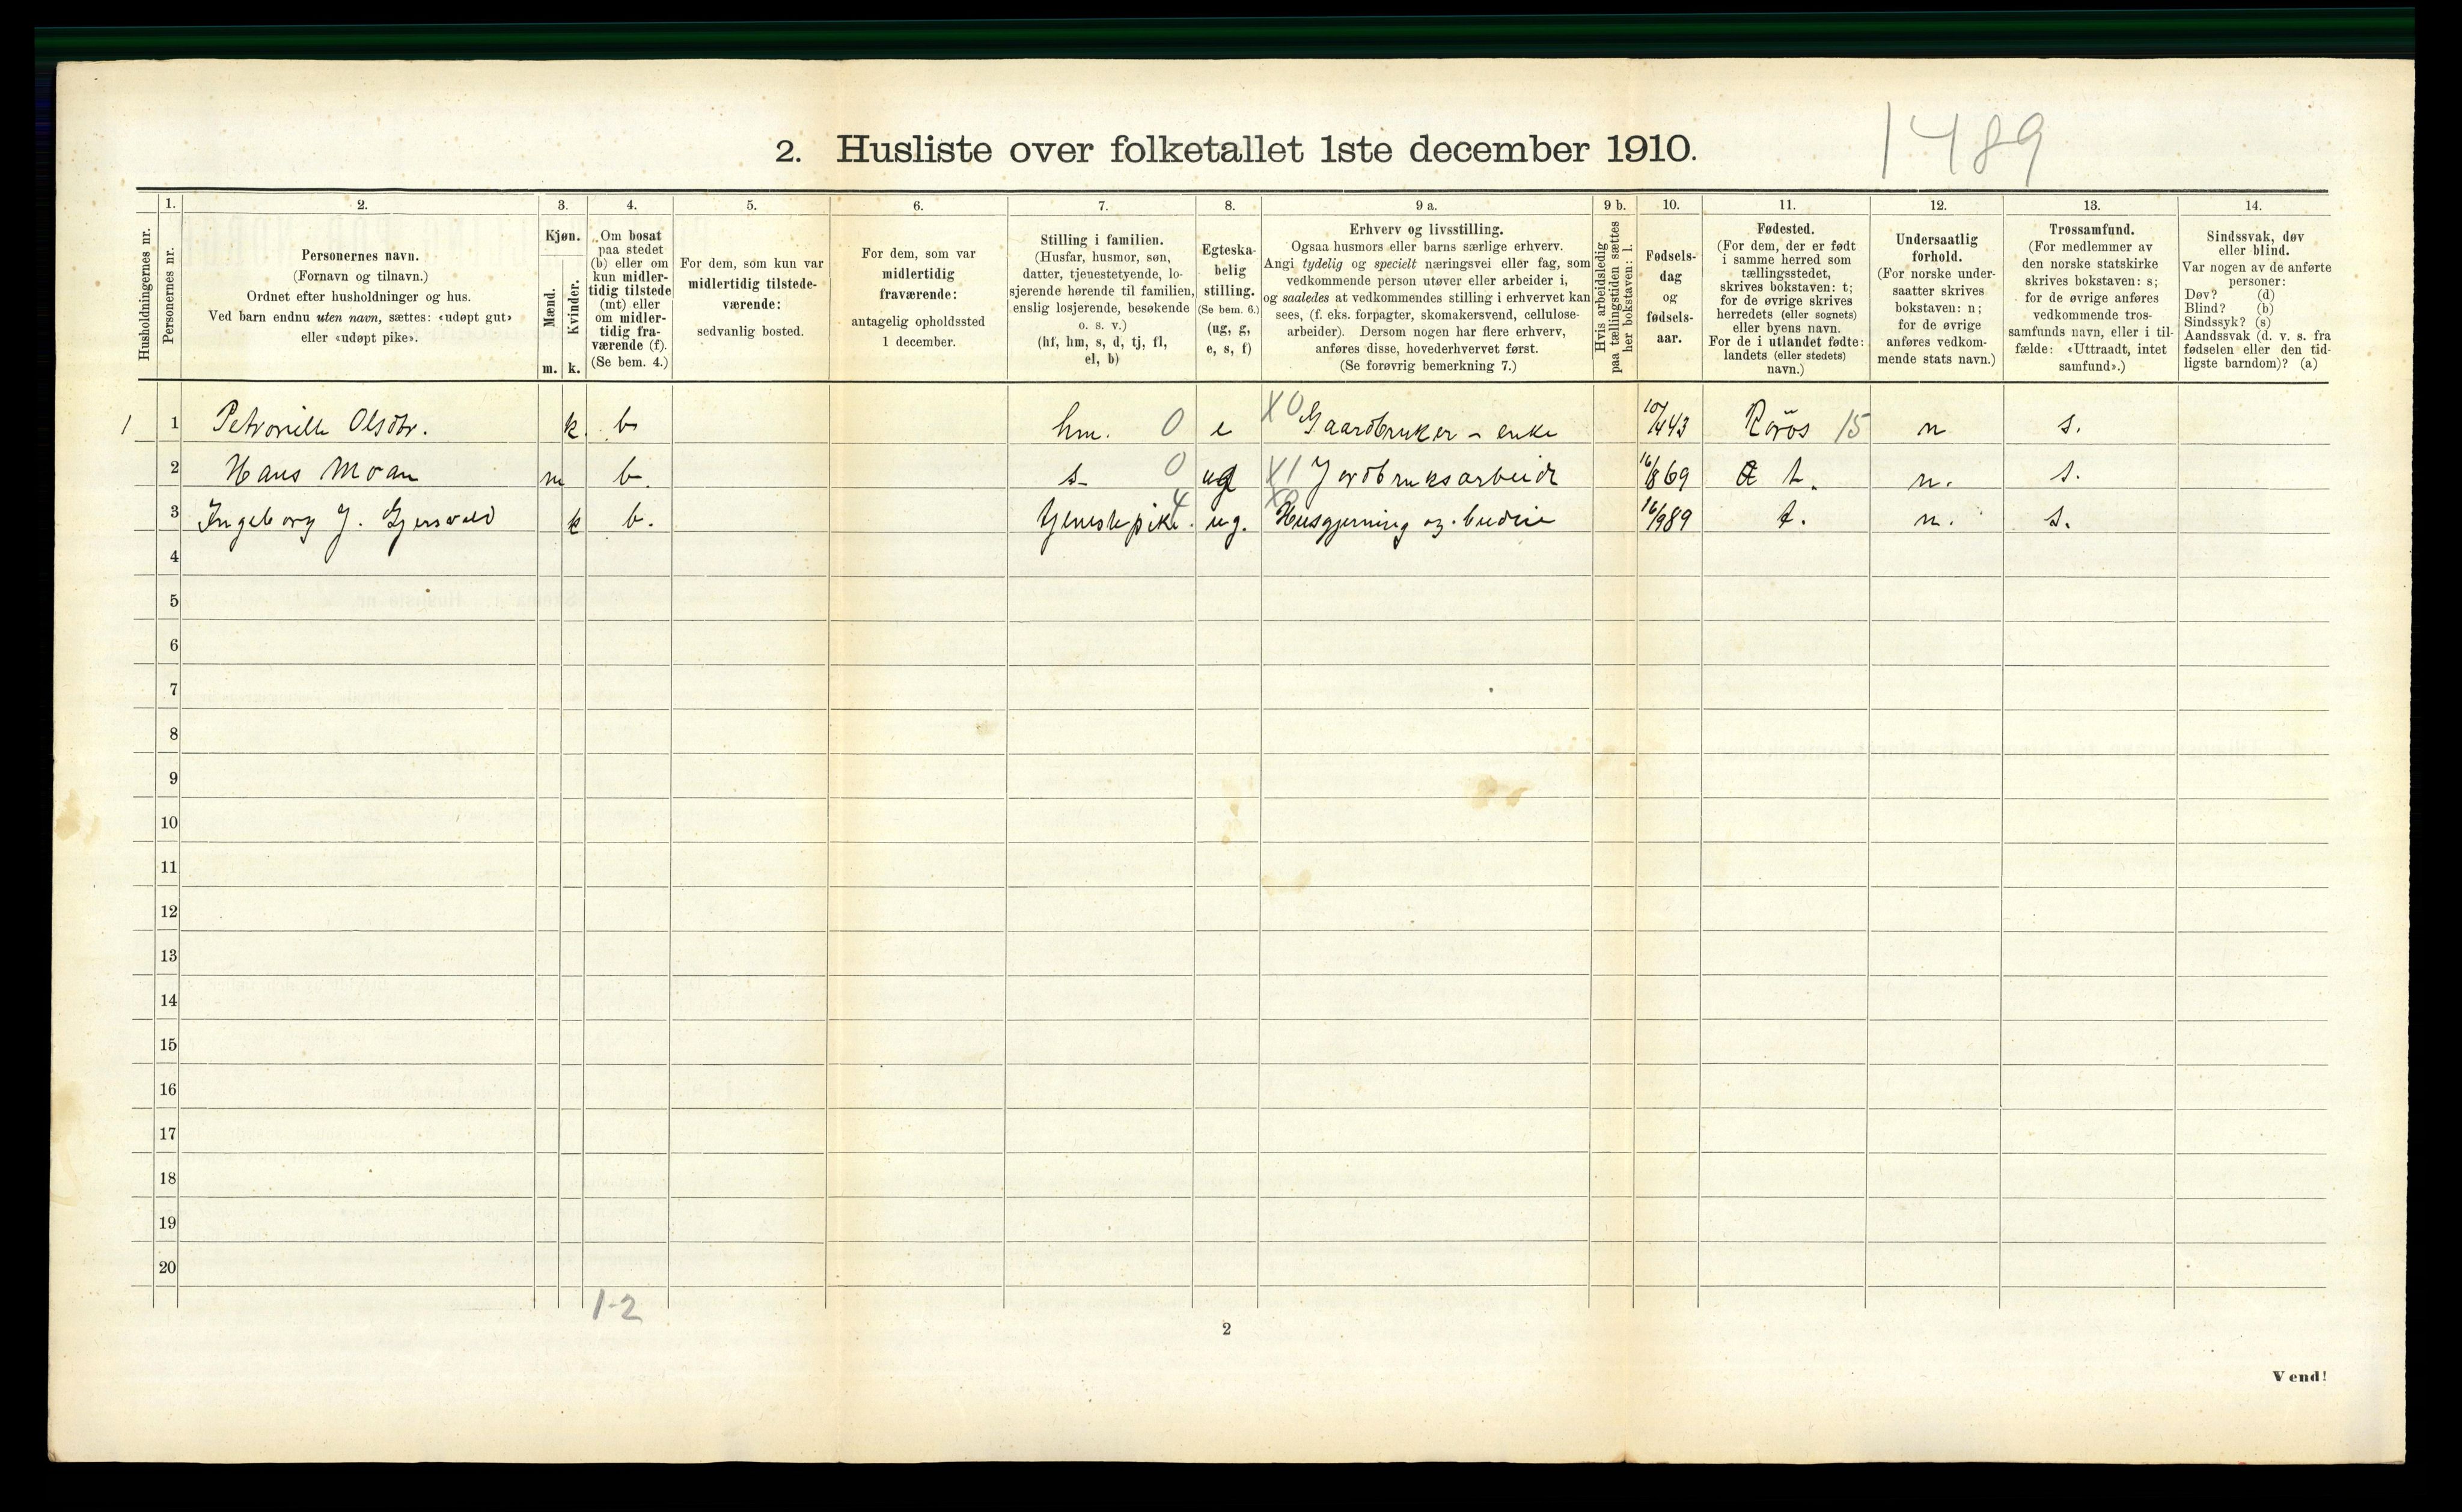 1489
2. Husliste over folketallet 1ste december 1910.
Husholdningernes nr.
1.
Personernes nr.
2.
Personernes navn.
(Fornavn og tilnavn.)
Ordnet efter husholdninger og hus.
Ved barn endnu uten navn, sættes: «udøpt gut»
eller «udøpt pike».
3.
Kjøn.
Mænd.
Kvinder.
m. k.
4.
Om bosat
paa stedet
(b) eller om
kun midler-
tidig tilstede
(mt) eller
om midler-
tidig fra-
værende (f).
(Se bem. 4.)
5.
For dem, som kun var
midlertidig tilstede-
værende:
sedvanlig bosted.
6.
For dem, som var
midlertidig
fraværende:
antagelig opholdssted
1 december.
7.
Stilling i familien.
(Husfar, husmor, søn,
datter, tjenestetyende, lo-
sjerende hørende til familien,
enslig losjerende, besøkende
o. s. v.)
(hf, hm, s, d, tj, fl,
el, b)
8.
Egteska-
belig
stilling.
(Se bem. 6.)
(ug, g,
e, s, f)
9 a.
Erhverv og livsstilling.
Ogsaa husmors eller barns særlige erhverv.
Angi tydelig og specielt næringsvei eller fag, som
vedkommende person utøver eller arbeider i,
og saaledes at vedkommendes stilling i erhvervet kan
sees, (f. eks. forpagter, skomakersvend, cellulose-
arbeider). Dersom nogen har flere erhverv,
anføres disse, hovederhvervet først.
(Se forøvrig bemerkning 7.)
9 b.
Hvis arbeidsledig
paa tællingstiden sættes
her bokstaven: l.
10.
Fødsels-
dag
og
fødsels-
aar.
11.
Fødested.
(For dem, der er født
i samme herred som
tællingsstedet,
skrives bokstaven: t;
for de øvrige skrives
herredets (eller sognets)
eller byens navn.
For de i utlandet fødte:
landets (eller stedets)
navn.)
12.
Undersaatlig
forhold.
(For norske under-
saatter skrives
bokstaven: n;
for de øvrige
anføres vedkom-
mende stats navn.)
13.
Trossamfund.
(For medlemmer av
den norske statskirke
skrives bokstaven: s;
for de øvrige anføres
vedkommende tros-
samfunds navn, eller i til-
fælde: «Uttraadt, intet
samfund».)
14.
Sindssvak, døv
eller blind.
Var nogen av de anførte
personer:
Døv? (d)
Blind? (b)
Sindssyk? (s)
Aandssvak (d. v. s. fra
fødselen eller den tid-
ligste barndom)? (a)
1 1 Petronille Olsdtr. k. b hm. 0 e X0 Gaardbruker - enke 10/4 43 Röros 15 n s.
2 Hans Moan m b. s 0 ug X1 Jordbruksarbeide 16/8 69 t. n. s.
3 Ingeborg J. Gjersvold k b. tjenestepike. 4 ug. Husgjerning og budeie 16/9 89 t. n. s.
4
5
6
7
8
9
10
11
12
13
14
15
16
17
18
19
20
1-2
2
Vend!